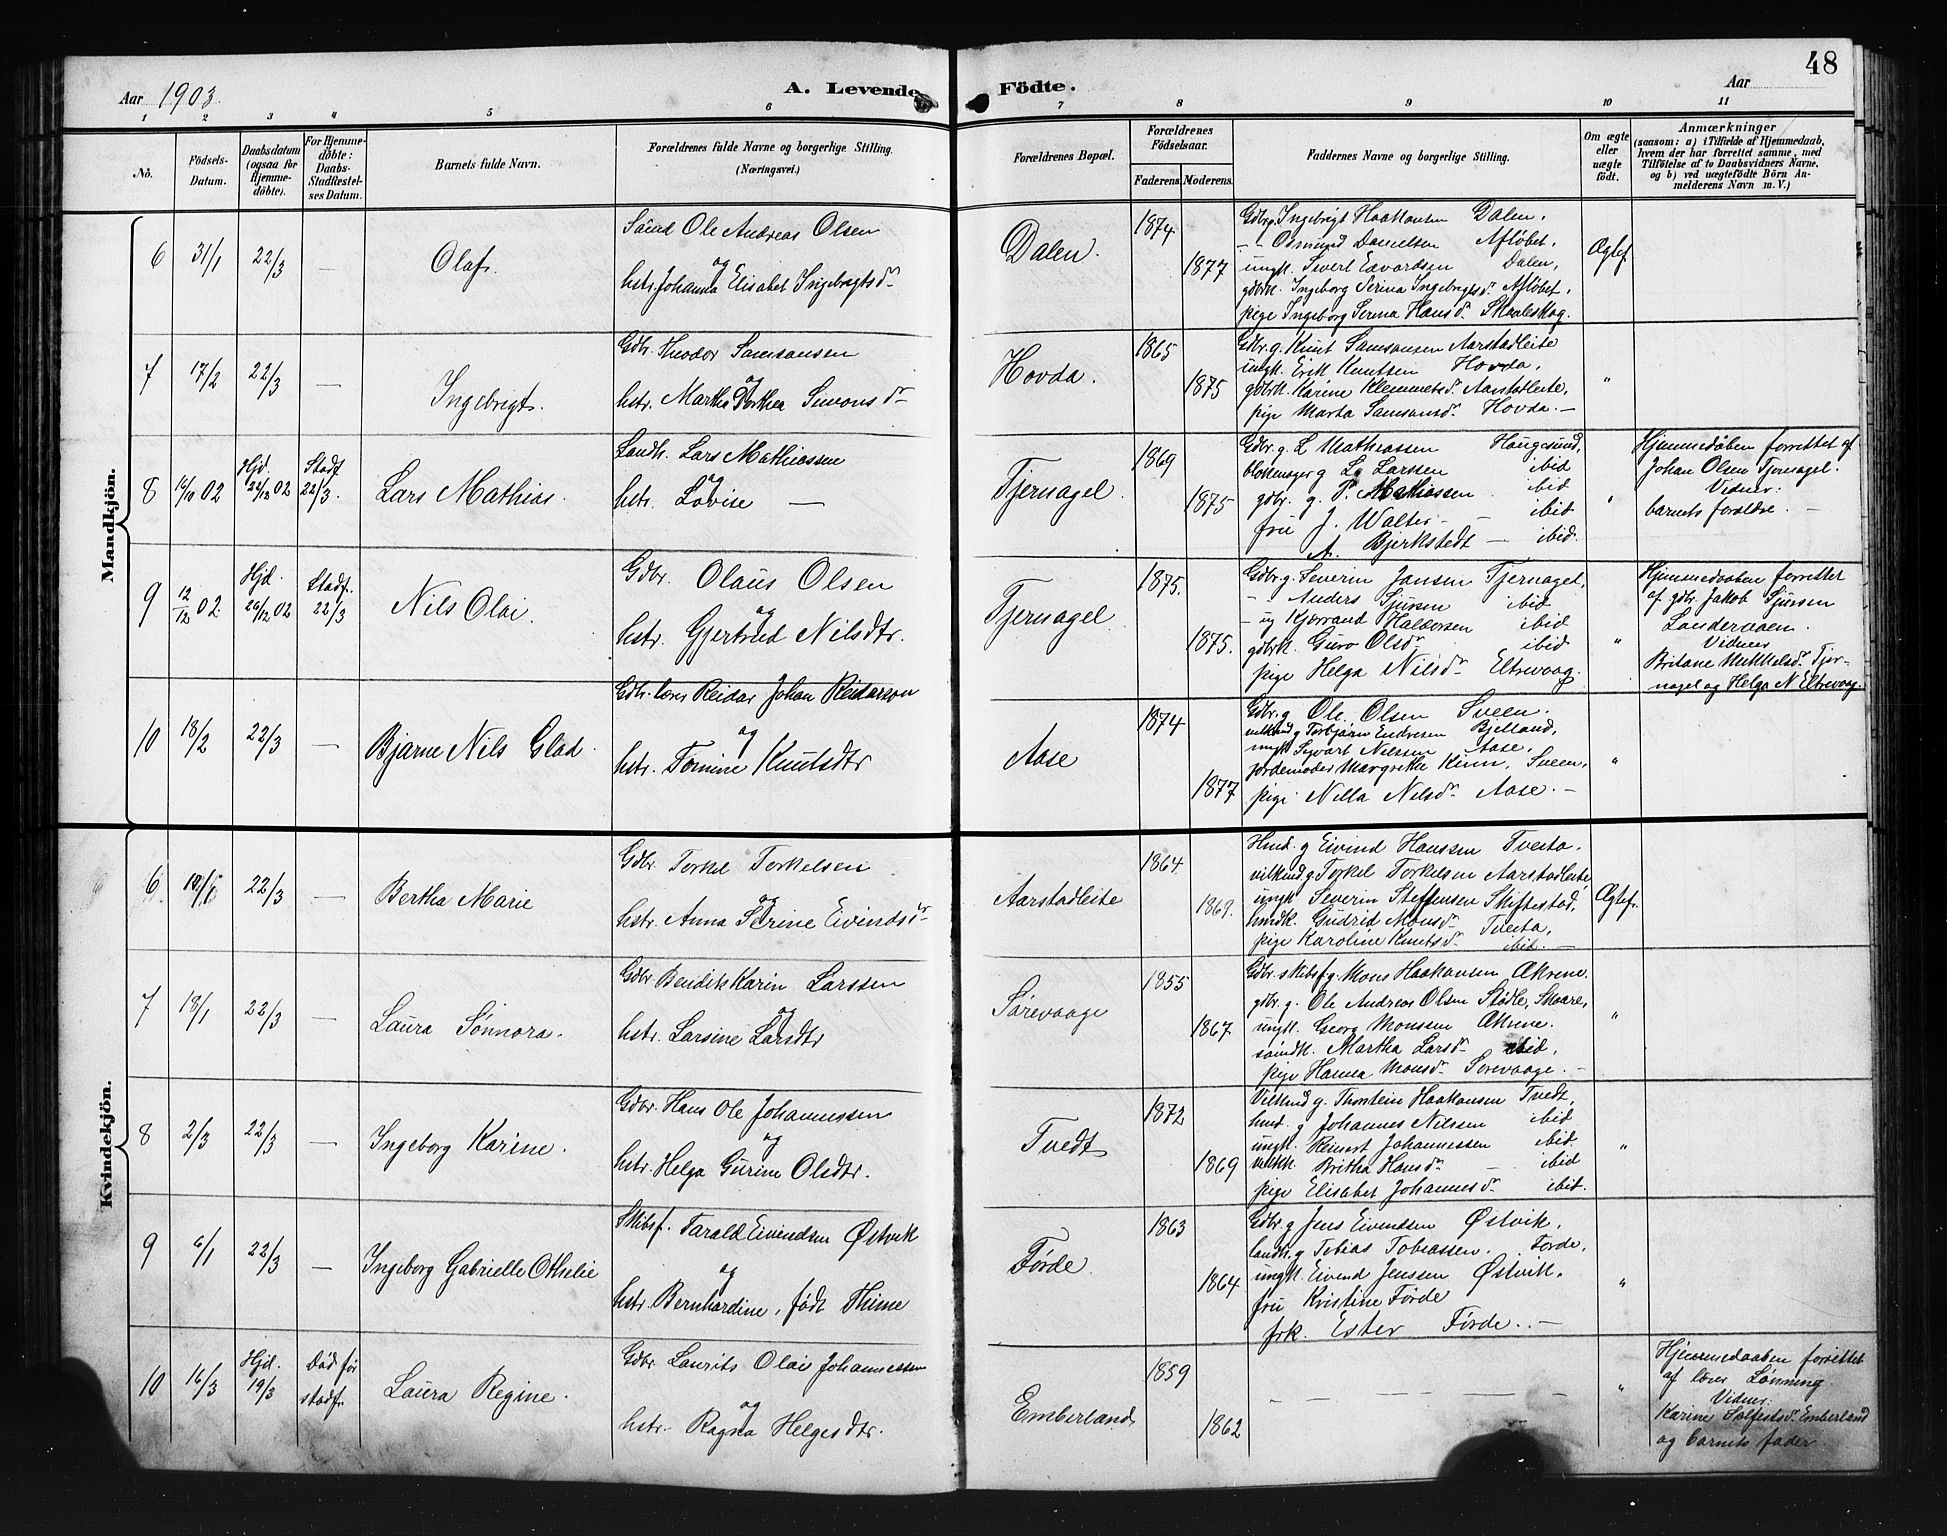 Aar 1903. A. Levende Födte. Aar 48
1 2 3 4 5 6 7 8 9 10 11
No. Födsels-Datum. Daabsdatum (ogsaa for Hjemme-döbte). For Hjemme-döbte: Daabs-Stadfæstel-ses Datum. Barnets fulde Navn. Forældrenes fulde Navne og borgerlige Stilling. (Næringsvei.) Forældrenes Bopæl. Forældrenes Födselsaar. Faderens. Moderens. Faddernes Navne og borgerlige Stilling. Om ægte eller uægte födt. Anmærkninger
(saasom: a) i Tilfælde af Hjemmedaab,
hvem der har forrettet samme, med
Tilföielse af to Daabsvidners Navne.
og b) ved uægtefödte Börn An-
melderens Navn m. V.)
Mandkjön.
6 31/1 22/3 — Olaf.
Ole Andreas Olsen
og
hstr. Johanna Elisabet Ingebrigtsdr
Dalen. 1874 1877
Gdbr. Ingebrigt Haakonsen Dalen,
- - Osmund Danielsen Afløbet,
ungk. Sivert Edvardsen Dalen,
gdbrk. Ingeborg Serina Ingebrigtsdr Afløbet,
pige Ingeborg Serina Hansdr Skaaleskog.
Ægtef.
7 17/2 22/3 — Ingebrigt.
Gdbr. Theodor Samsonsen
og
hstr. Martha Dorthea Simonsdr
Hovda. 1865 1875
Gdbr. g. Knut Samsonsen Aarstadleite
ungk. Erik Knutsen Hovda,
gdbrk. Karine Klemmetsdr Aarstadleite,
pige Marta Samsonsdr Hovda. —
"
8 16/10 02 Hjd. 22/3. Stadf. Lars Mathias.
Landh. Lars Mathiassen
og
hstr. Lovise —
Tjernagel. 1869 1875
Gdbr. g. L Mathiassen Haugesund,
g L. Larssen ibid
gdbr. g. P. Mathiassen ibid
fru J. Walter - — ibid
A. Bjerkstedt — ibid.
"
Hjemmedåben forrettet af
Johan Olsen Tjernagel.
Vidner:
barnets forældre. —
9 12/12 02 Hjd. 26/12 02 Stadf. 22/3 Nils Olai.
Gdbr. Olaus Olsen
og
hstr. Gjertrud Nilsdtr.
Tjernagel 1875. 1875.
Gdbr. g. Severin Jansen Tjernagel,
- - Anders Sjursen ibid
- ug Halvorsen ibid
gdbrk. Guro Olsdr ibid
pige Helga Nilsdr Eltrevaag.
"
Hjemmedaaben forrettet
af gdbr. Jakob Sjursen
Vidner
Britane Mikkelsdr Tjer-
nagel og Helga N. Eltrevaag.
10 18/2 22/3 — Bjarne Nils Glad.
Reidar Johan Reidarson
og
hstr. Tomine Knutsdtr
Aase 1874 1877
Gdbr. g Ole Olsen Sveen.
Torbjørn Endresen Bjelland,
ungk Sivert Nilssen Aase,
jordemoder Margrethe Kinn, Sveen,
pige Nilla Nilsdr Aase. —
"
Kvindekjön.
6 22/3 — Bertha Marie
Gdbr. Torkel Torkelsen
og
hstr. Anna Serine Eivindsdr
Aarstadleite 1864 1869.
Hmd. g Eivind Hanssen Tveita,
g. Torkel Torkelsen Aarstadleite,
ungk Severin Steffensen Skiftestad,
hmdk. Gudrid Monsdr Tveita,
pige Karoline Knutsdr ibid. —
Ægtef.
7 18/1 22/3 — Laura Sønnora.
Gdbr Bendik Karin Larssen
og
hstr. Larsine Larsdtr
Sørevaage 1855 1867.
Gdbr. skibsf g. Mons Haakonsen Økrene.
gdbr. g. Ole Andreas Olsen Stødle, Skaare,
ungk. Georg Monssen Økrene.
Martha Larsdr ibid,
pige Hanna Monsdr Sørevaage. —
"
8 2/3 22/3 — Ingeborg Karine.
Gdbr. Hans Ole Johannessen
og
hstr. Helga Gurine Olsdtr.
Tvedt 1872 1869
g. Thorstein Haakonsen Tvedt,
hmd. g Johannes Nilssen ibid
ungk. Reinert Johannessen ibid
Britha Hansdr — ibid
pige Elisabet Johannesdr ibid.
"
9 6/1 22/3 — Ingeborg Gabrielle Othelie
Skibsf. Tarald Eivendsen Østvik
og
hstr. Bernhardine, født Thime
Førde 1863 1864
Gdbr. g Jens Eivendsen Østvik,
landh. g Tobias Tobiassen. Førde,
ungk. Eivend Jenssen Østvik,
fru Kristine Førde
frk. Ester Førde. . —
"
10 16/3 Hjd. 19/3 Död før stadf. Laura Regine.
Gdbr Laurits Olai Johannessen
og
hstr. Ragna Helgesdtr.
Emberland 1859 1862
- — — — — —
"
Hjemmedaaben forrettet
af lærer Lønning.
Vidner:
Karine Salfestsdr Emberland
og barnets fader.